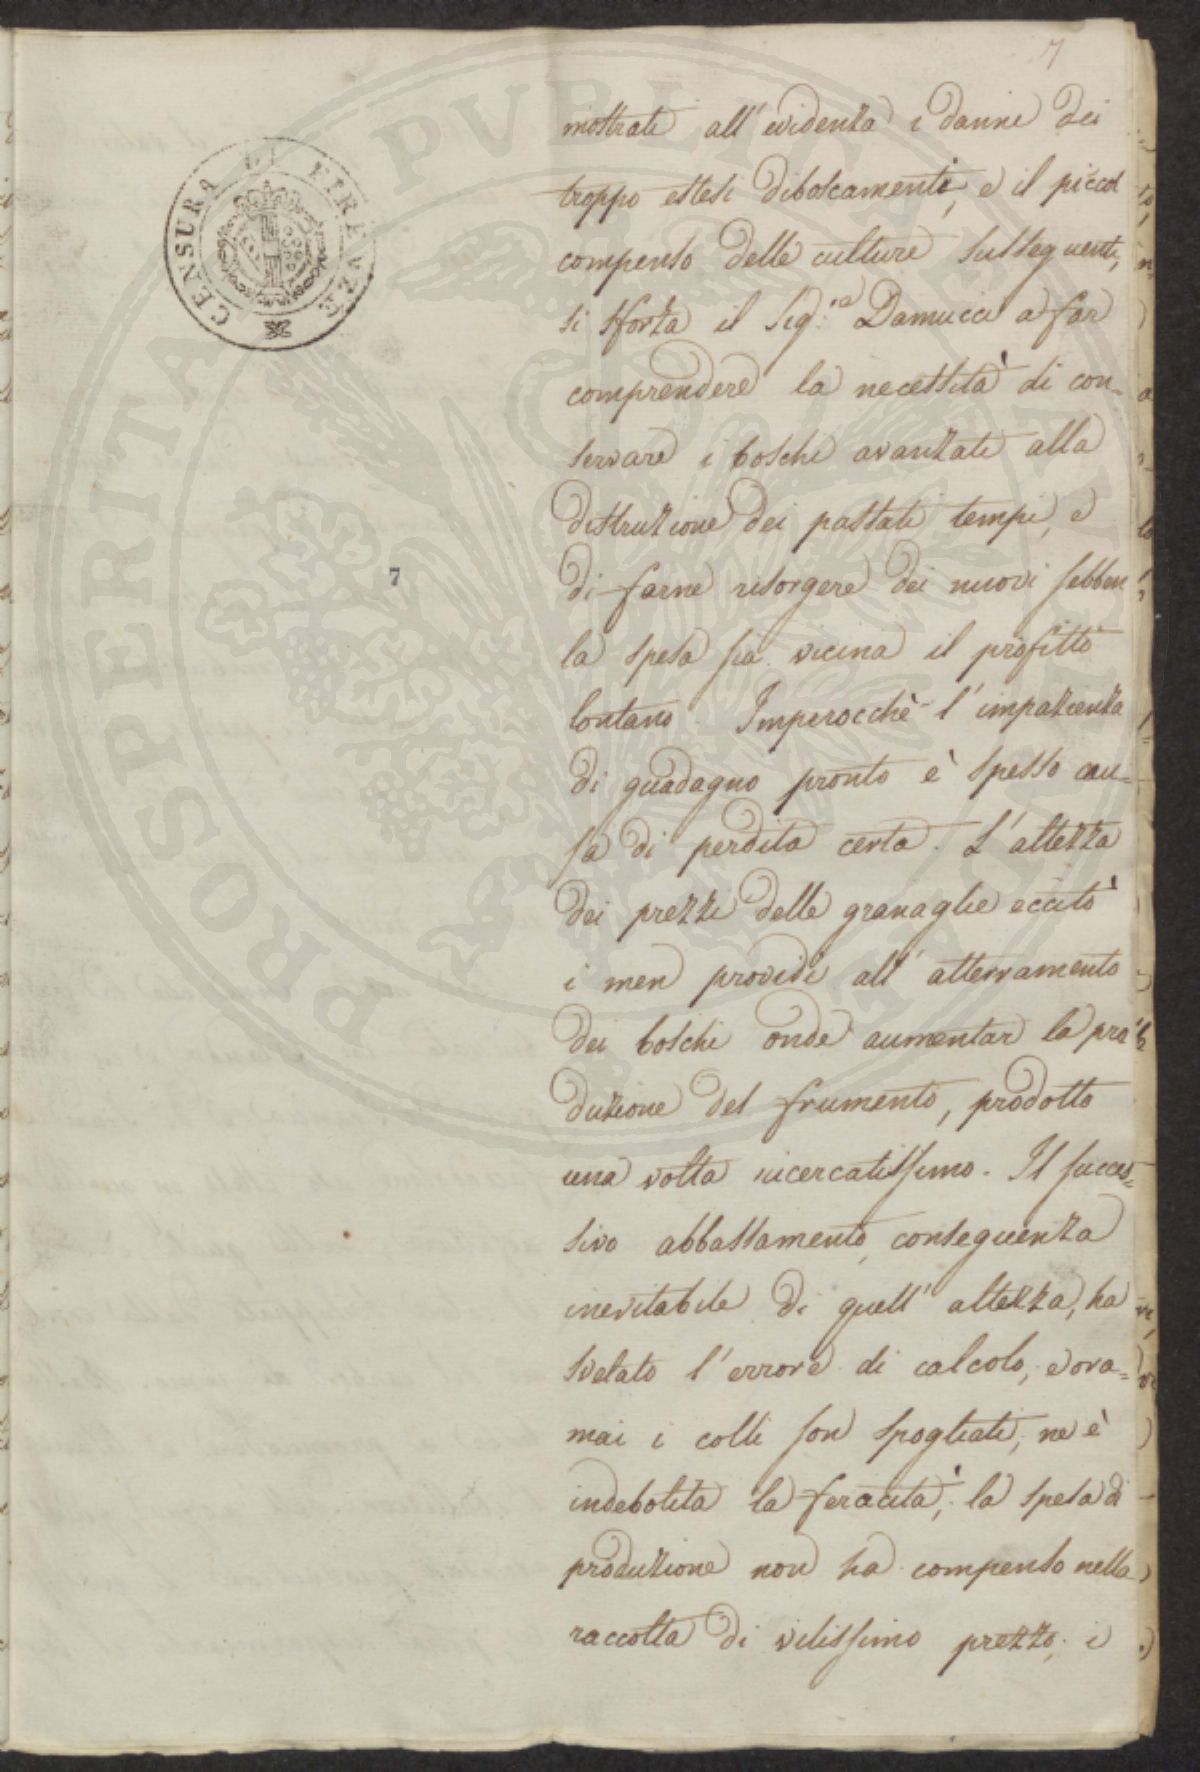 7
mostrati all'evidenza i danni dei
troppo estesi diboscamenti, e il piccol
compenso delle culture susseguenti,
si sforza il Sig.re Damucci a far
comprendere la necessità di con-
servare i boschi avanzati alla
distruzione dei passati tempi, e
di farne risorgere dei nuovi sebben
la spesa sia vicina il profitto
lontano. Imperocchè l'impazienza
di guadagno pronto è spesso cau-
sa di perdita certa. L'altezza
dei prezzi delle granaglie eccitò
i men providi all'atterramento
dei boschi onde aumentar la pro
duzione del frumento, prodotto
una volta ricercatissimo. Il succes=
sivo abbassamento, conseguenza
inevitabile di quell'altezza, ha
svelato l'errore di calcolo, e ora=
mai i colli son spogliati, ne è
indebolita la feracità, la spesa di
produzione non ha compenso nella
raccolta di vilissimo prezzo, i
CENSURA DI FIRENZE
7
PROSPERITATI PVBLICAE